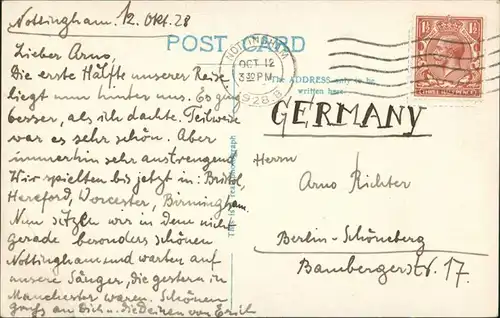 Nottingham. 12. Okt. 28
POST CARD
NOTTINGHAM
OCT 12
3 30 PM
1928
Lieber Arno,
Die erste Hälfte unserer Reise
liegt nun hinter uns. Es ging
besser, als ich dachte. Teilweise
war es sehr schön. Aber
immerhin sehr anstrengend.
Wir spielten bis jetzt in: Bristol,
Hereford, Worcester, Birmingham.
Nun sitzen wir in dem nicht
gerade besonders schönen
Nottingham und warten auf
unsere Sänger, die gestern in
Manchester waren. Schönen
Gruss an Dich u. die deinen von Erich
This is a Real Photograph
The ADDRESS only to be
written here
GERMANY
Herrn
Arno Richter
Berlin-Schöneberg
Bambergerstr. 17.